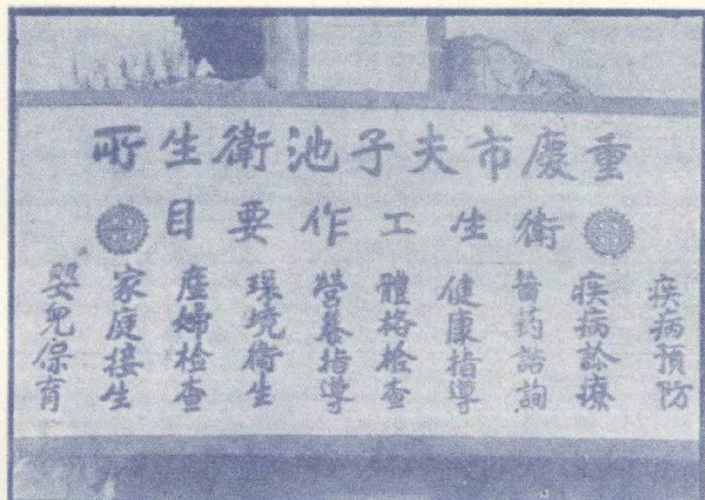 重慶市夫子池衛生所
衛生工作要目
疾病預防
疾病診療
醫药諮詢
健康指導
體格檢查
營養指導
環境衛生
產婦检查
家庭接生
嬰兒保育